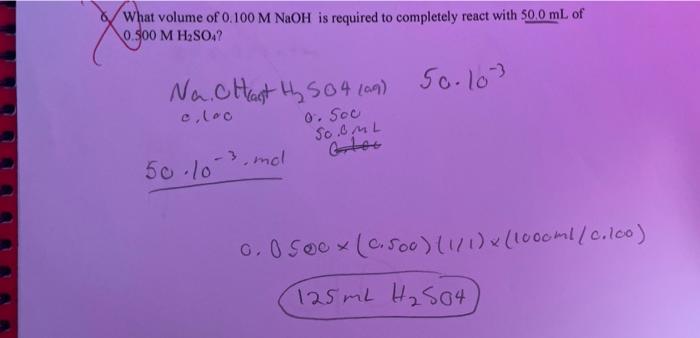 6. What volume of 0.100 M NaOH is required to completely react with 50.0 mL of
0.500 M H₂SO₄?
NaOH(aq)+ H₂SO4 (aq) 50.10⁻³
0.100 0.500
50.0mL
50.10⁻³.mol
0.0500×(0.500)(1/1)×(1000ml/0.100)
125mL H₂SO4